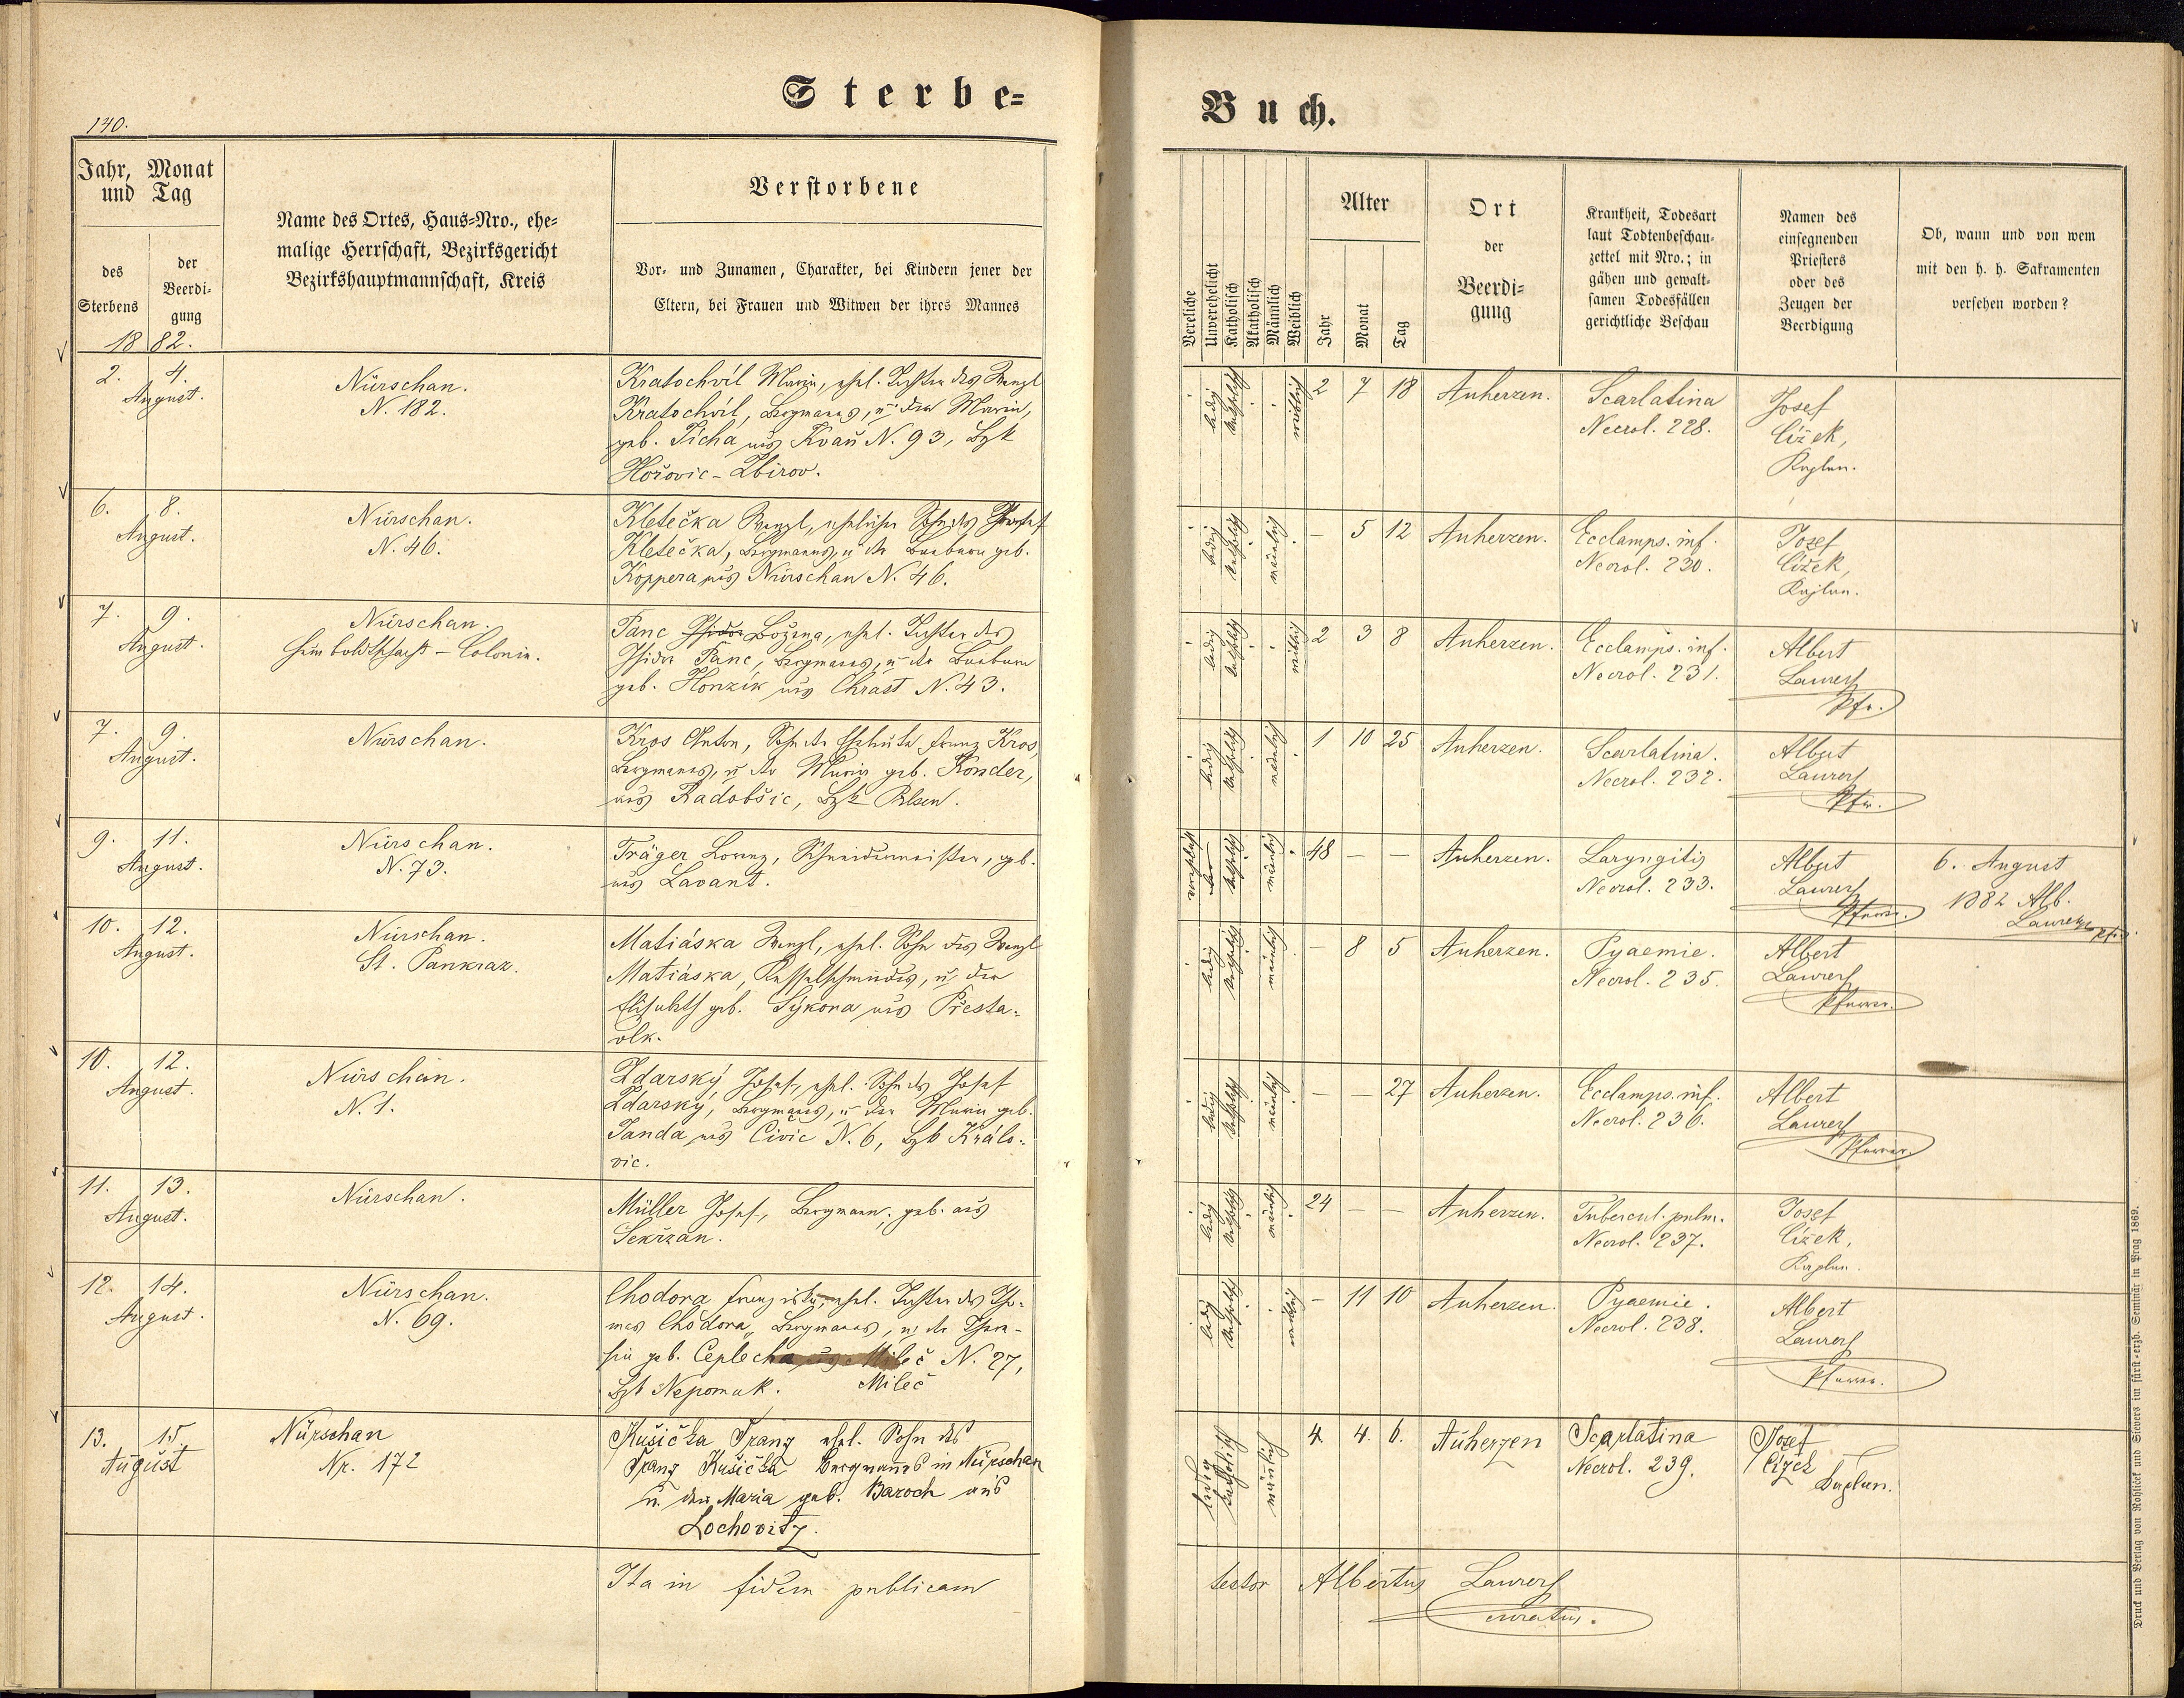 Sterbe=
Buch.
140.
Jahr, Monat
und Tag
des
Sterbens
der
Beerdi-
gung
1882.
Name des Ortes, Haus=Nro., ehe=
malige Herrschaft, Bezirksgericht
Bezirkshauptmannschaft, Kreis
Verstorbene
Vor- und Zunamen, Charakter, bei Kindern jener der
Eltern, bei Frauen und Witwen der ihres Mannes
Vereliche
Unverehelicht
Katholisch
Akatholisch
Männlich
Weiblich
Alter
Jahr
Monat
Tag
Ort
der
Beerdi=
gung
Krankheit, Todesart
laut Todtenbeschau=
zettel mit Nro.; in
gähen und gewalt=
samen Todesfällen
gerichtliche Beschau
Namen des
einsegnenden
Priesters
oder des
Zeugen der
Beerdigung
Ob, wann und von wem
mit den h. h. Sakramenten
versehen worden?
2. 4.
August.
Nürschan.
N. 182.
Kratochvíl Maria, ehel. Tochter des Wenzl
Kratochvíl, Bergmanns, u. der Maria,
geb. Tichá aus Kvaň N. 93, Bzk
Hořovic - Zbirov.
ledig katholisch weiblich
2 7 18
Auherzen.
Scarlatina
Necrol. 228.
Josef
Čížek,
Kaplan.
6. 8.
August.
Nürschan.
N. 46.
Kletečka Wenzl, ehelicher Sohn des Josef
Kletečka, Bergmanns, u. der Barbara geb.
Koppera aus Nürschan N. 46.
ledig katholisch männlich
– 5 12
Auherzen.
Ecclamps. inf.
Necrol. 230.
Josef
Čížek,
Kaplan.
7. 9.
August.
Nürschan.
Humboldtschacht - Colonie.
Panc Isidor Božena, ehel. Tochter des
Isidor Panc, Bergmanns, u. der Barbara
geb. Honzík aus Chrast N. 43.
ledig katholisch weiblich
2 3 8
Auherzen.
Ecclamps. inf.
Necrol. 231.
Albert
Laurer
Pfr.
7. 9.
August.
Nürschan.
Kros Anton, Sohn der Eheleute Franz Kros,
Bergmanns, u. der Maria geb. Konder,
aus Radobšic, Bzk Pilsen.
ledig katholisch männlich
1 10 25
Auherzen.
Scarlatina.
Necrol. 232.
Albert
Laurer
Pfr.
9. 11.
August.
Nürschan.
N. 73.
Träger Lorenz, Schneidermeister, geb.
aus Lavant.
katholisch männlich
48 – –
Auherzen.
Laryngitis
Necrol. 233.
Albert
Laurer
Pfarrer.
6. August
1882 Alb.
Laurer Pfr.
10. 12.
August.
Nürschan.
St. Pankraz.
Matiáska Wenzl, ehel. Sohn des Wenzl
Matiáska, Kesselschmiedes, u. der
Elisabeth geb. Sýkora aus Přesta-
vlk.
ledig katholisch männlich
– 8 5
Auherzen.
Pyaemie.
Necrol. 235.
Albert
Laurer
Pfarrer.
10. 12.
August.
Nürschan.
N. 1.
Zdarský Josef, ehel. Sohn des Josef
Zdarský, Bergmanns, u. der Maria geb.
Janda aus Civic N. 6, Bzk Královic.
ledig katholisch männlich
– – 27
Auherzen.
Ecclamps. inf.
Necrol. 236.
Albert
Laurer
Pfarrer.
11. 13.
August.
Nürschan.
Müller Josef, Bergmann, geb. aus
Sekřzan.
ledig katholisch männlich
24 – –
Auherzen.
Tubercul. pulm.
Necrol. 237.
Josef
Čížek,
Kaplan.
12. 14.
August.
Nürschan.
N. 69.
Chodora Franziska, ehel. Tochter des Tho-
mas Chodora, Bergmanns, u. der There-
sia geb. Ceplecha aus Mileč N. 27,
Bzk Nepomuk. Mileč
ledig katholisch weiblich
– 11 10
Auherzen.
Pyaemie.
Necrol. 238.
Albert
Laurer
Pfarrer.
13. 15.
August
Nürschan
Nr. 172
Kušička Franz ehel. Sohn des
Franz Kušička Bergmanns in Nürschan
u. der Maria geb. Baroch aus
Lochovitz.
ledig katholisch männlich
4. 4. 6.
Auherzen
Scarlatina
Necrol. 239.
Josef
Čížek
Kaplan.
Ita in fidem publicam
testor Albertus Laurer
curatus.
Druck und Verlag von Rohliček und Sievers im fürst=erzb. Seminär in Prag 1869.